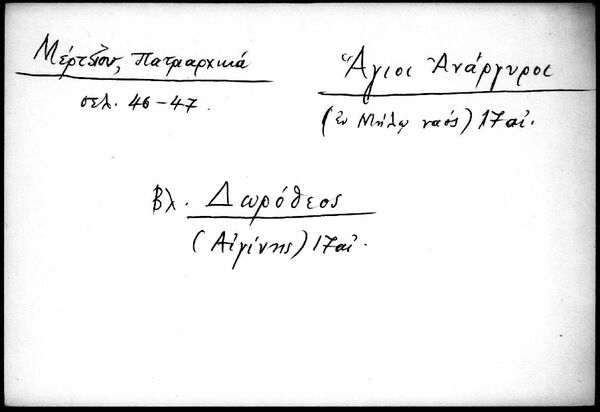 Μέρτζιου, Πατριαρχικά
σελ. 46-47.
Ἅγιοι Ἀνάργυροι
(ἐν Μήλῳ ναός) 17 αἰ.
Βλ. Δωρόθεος
(Αἰγίνης) 17 αἰ.